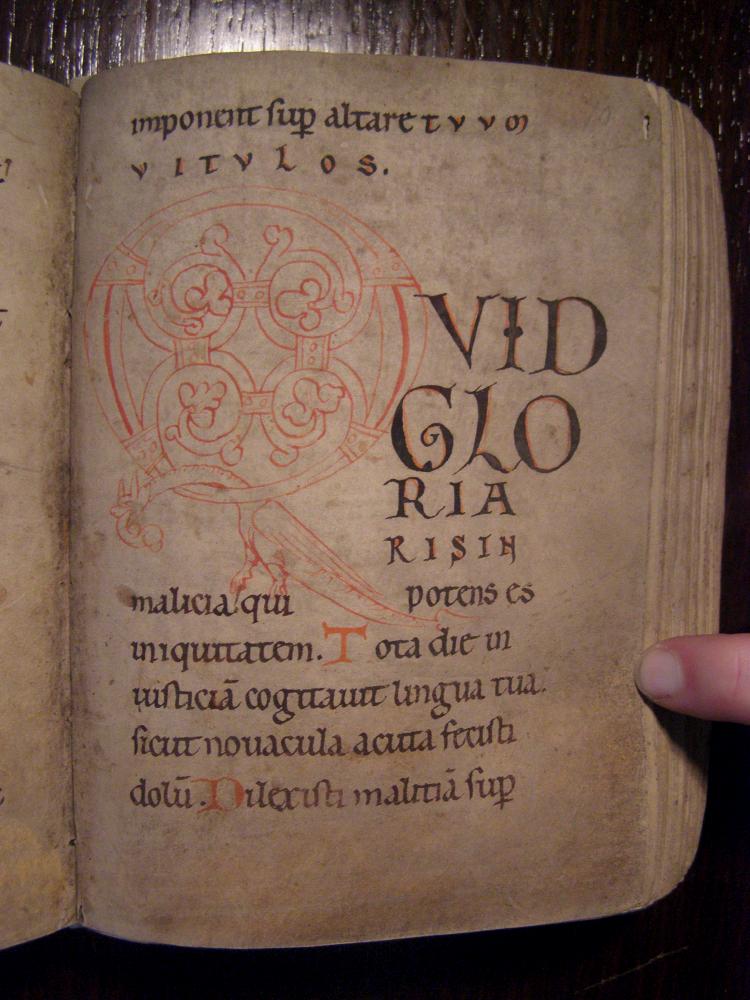 imponent sup̄ altare tuum
VITVLOS.
QVID
GLO
RIA
RISIN
malicia qui potens es
iniquitatem. Tota die in
iusticiā cogitauit lingua tua.
sicut nouacula acuta fecisti
dolū. Dilexisti malitiā sup̄